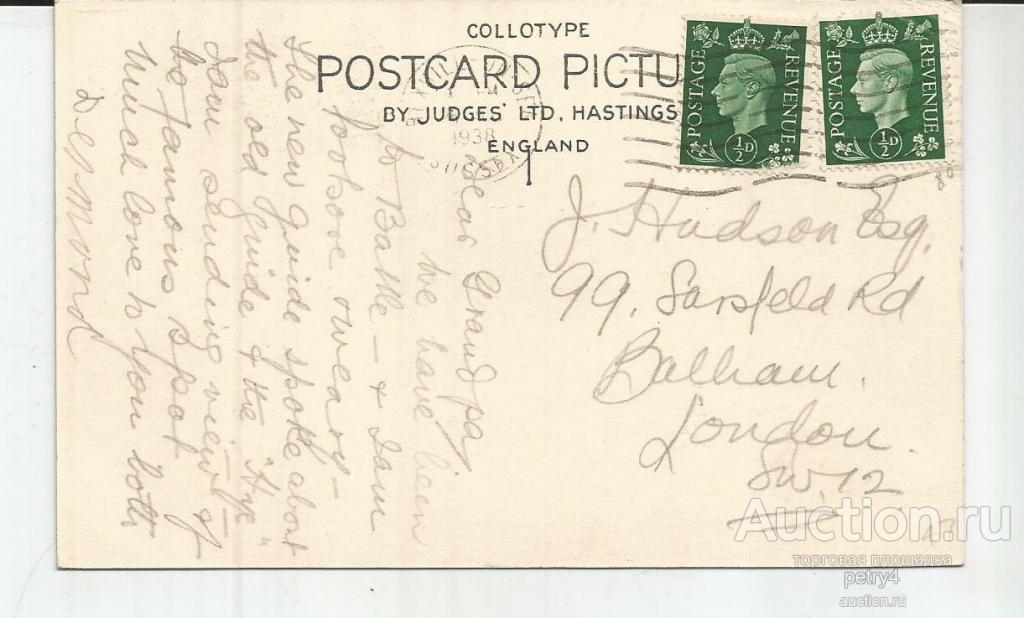 COLLOTYPE
POSTCARD PICTU
BY JUDGES' LTD, HASTINGS
ENGLAND
1938
SUSSEX
POSTAGE REVENUE
½D
POSTAGE REVENUE
½D
Dear Grandpa
We have been
to Battle – & I am
footsore & weary –
The new guide spoke about
the old guide & the "Hye"
I am sending view of
the famous spot
Much love to you both
Desmond
J. Hudson Esq.
99. Sarsfeld Rd
Balham.
London.
SW.12
Auction.ru
торговая площадка
petry4
auction.ru